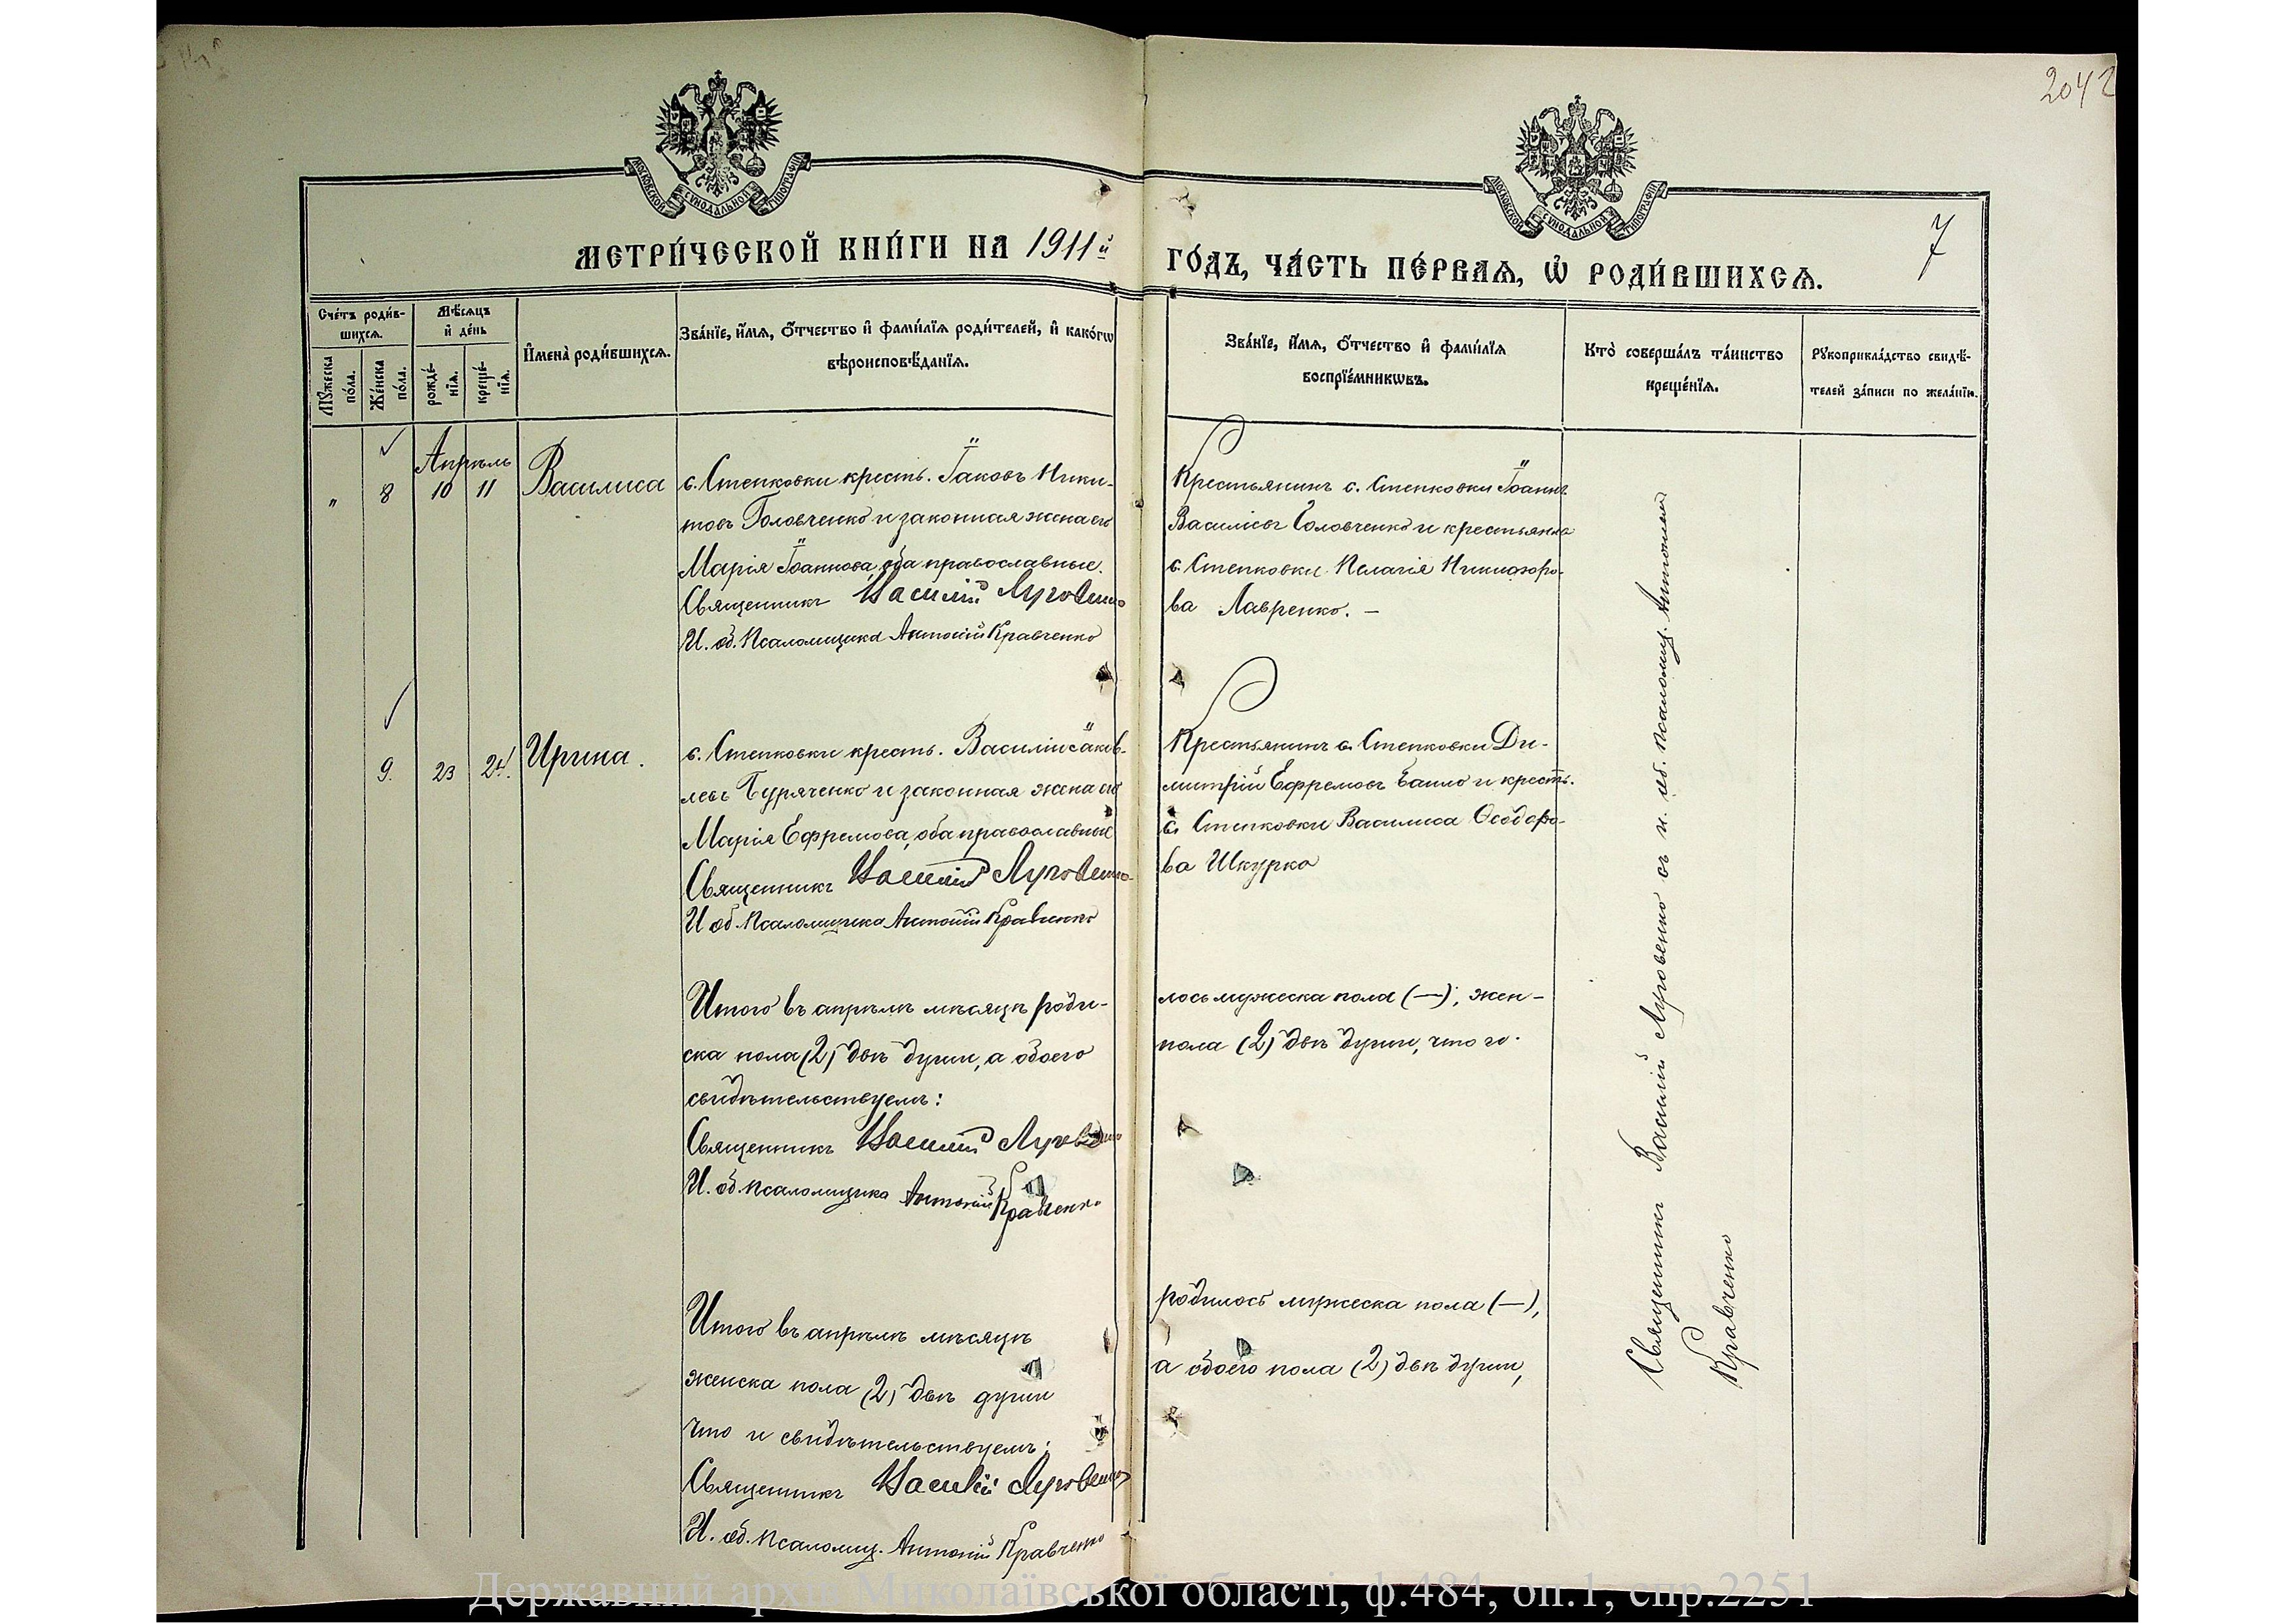 2042
МОСКОВСКОЙ СѴНОДАЛЬНОЙ ТИПОГРАФІИ
МОСКОВСКОЙ СѴНОДАЛЬНОЙ ТИПОГРАФІИ
МЕТРИ́ЧЕСКОЙ КНИ́ГИ НА 1911й
ГО́ДЪ, ЧА́СТЬ ПЕ́РВАѦ, Ѡ҆ РОДИ́ВШИХСѦ.
7
Сче́тъ роди́в-
шихсѧ.
Мѣ́сѧцъ
и҆ де́нь
Мꙋ́жеска
по́ла.
Же́нска
по́ла.
рожде́-
нїѧ.
креще́-
нїѧ.
И҆мена̀ роди́вшихсѧ.
Зва́нїе, и҆́мѧ, ѻ҆́тчество и҆ фами́лїѧ роди́телей, и҆ како́гѡ
вѣроисповѣ́данїѧ.
Зва́нїе, и҆́мѧ, ѻ҆́тчество и҆ фами́лїѧ
воспрїе́мникѡвъ.
Кто̀ соверша́лъ та́инство
креще́нїѧ.
Рꙋкоприкла́дство свидѣ́-
телей за́писи по жела́нїю.
Апрѣль
" 8 10 11 Василиса
с. Степковки крестьʼ. Іаковъ Ники-
товъ Головченко и законная жена его
Марія Іоаннова, оба православные.
Священникъ Василій Луговенко
И. об. Псаломщика Антоній Кравченко
Крестьянинъ с. Степковки Іоаннъ
Василіевъ Головченко и крестьянка
с. Степковки Пелагія Никифоро-
ва Лавренко. –
9. 23 24. Ирина.
с. Степковки кресть. Василій Іаков-
левъ Буряченко и законная жена его
Марія Ефремова, оба православные
Священникъ Василій Луговенко
И об. Псаломщика Антоній Кравченко
Крестьянинъ с. Степковки Ди-
митрій Ефремовъ Баило и кресть.
с. Степковки Василиса Ѳеодоро-
ва Шкурко
Итого въ апрѣлѣ мѣсяцѣ роди-
лось мужеска пола (—), жен-
ска пола (2) двѣ души, а обоего
пола (2) двѣ души, что и
свидѣтельствуемъ:
Священникъ Василій Луговенко
И. об. псаломщика Антоній Кравченко
Итого въ апрѣлѣ мѣсяцѣ
родилось мужеска пола (—),
женска пола (2) двѣ души
а обоего пола (2) двѣ души,
что и свидѣтельствуемъ:
Священникъ Василій Луговенко
И. об. псаломщ. Антоній Кравченко
Священникъ Василій Луговенко съ и. об. псаломщ. Антоніемъ
Кравченко
Державний архів Миколаївської області, ф.484, оп.1, спр.2251